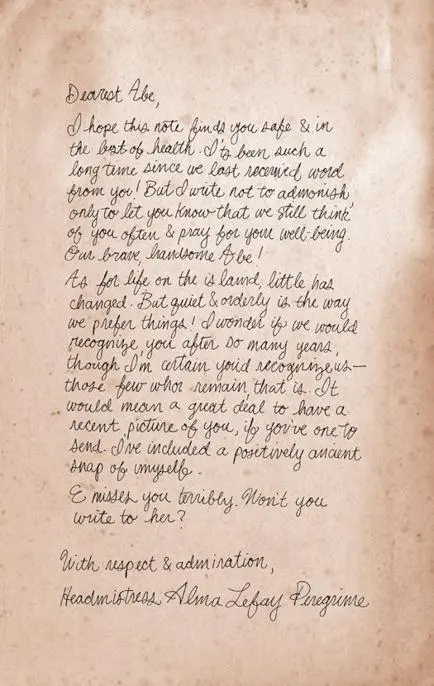 Dearest Abe,
I hope this note finds you safe & in
the best of health. It's been such a
long time since we last received word
from you! But I write not to admonish
only to let you know that we still think
of you often & pray for your well-being.
Our brave, handsome Abe!
As for life on the island, little has
changed. But quiet & orderly is the way
we prefer things! I wonder if we would
recognize you after so many years,
though I'm certain you'd recognize us—
those few who remain, that is. It
would mean a great deal to have a
recent picture of you, if you've one to
send. I've included a positively ancient
snap of myself.
E misses you terribly. Won't you
write to her?
With respect & admiration,
Headmistress Alma Lefay Peregrine